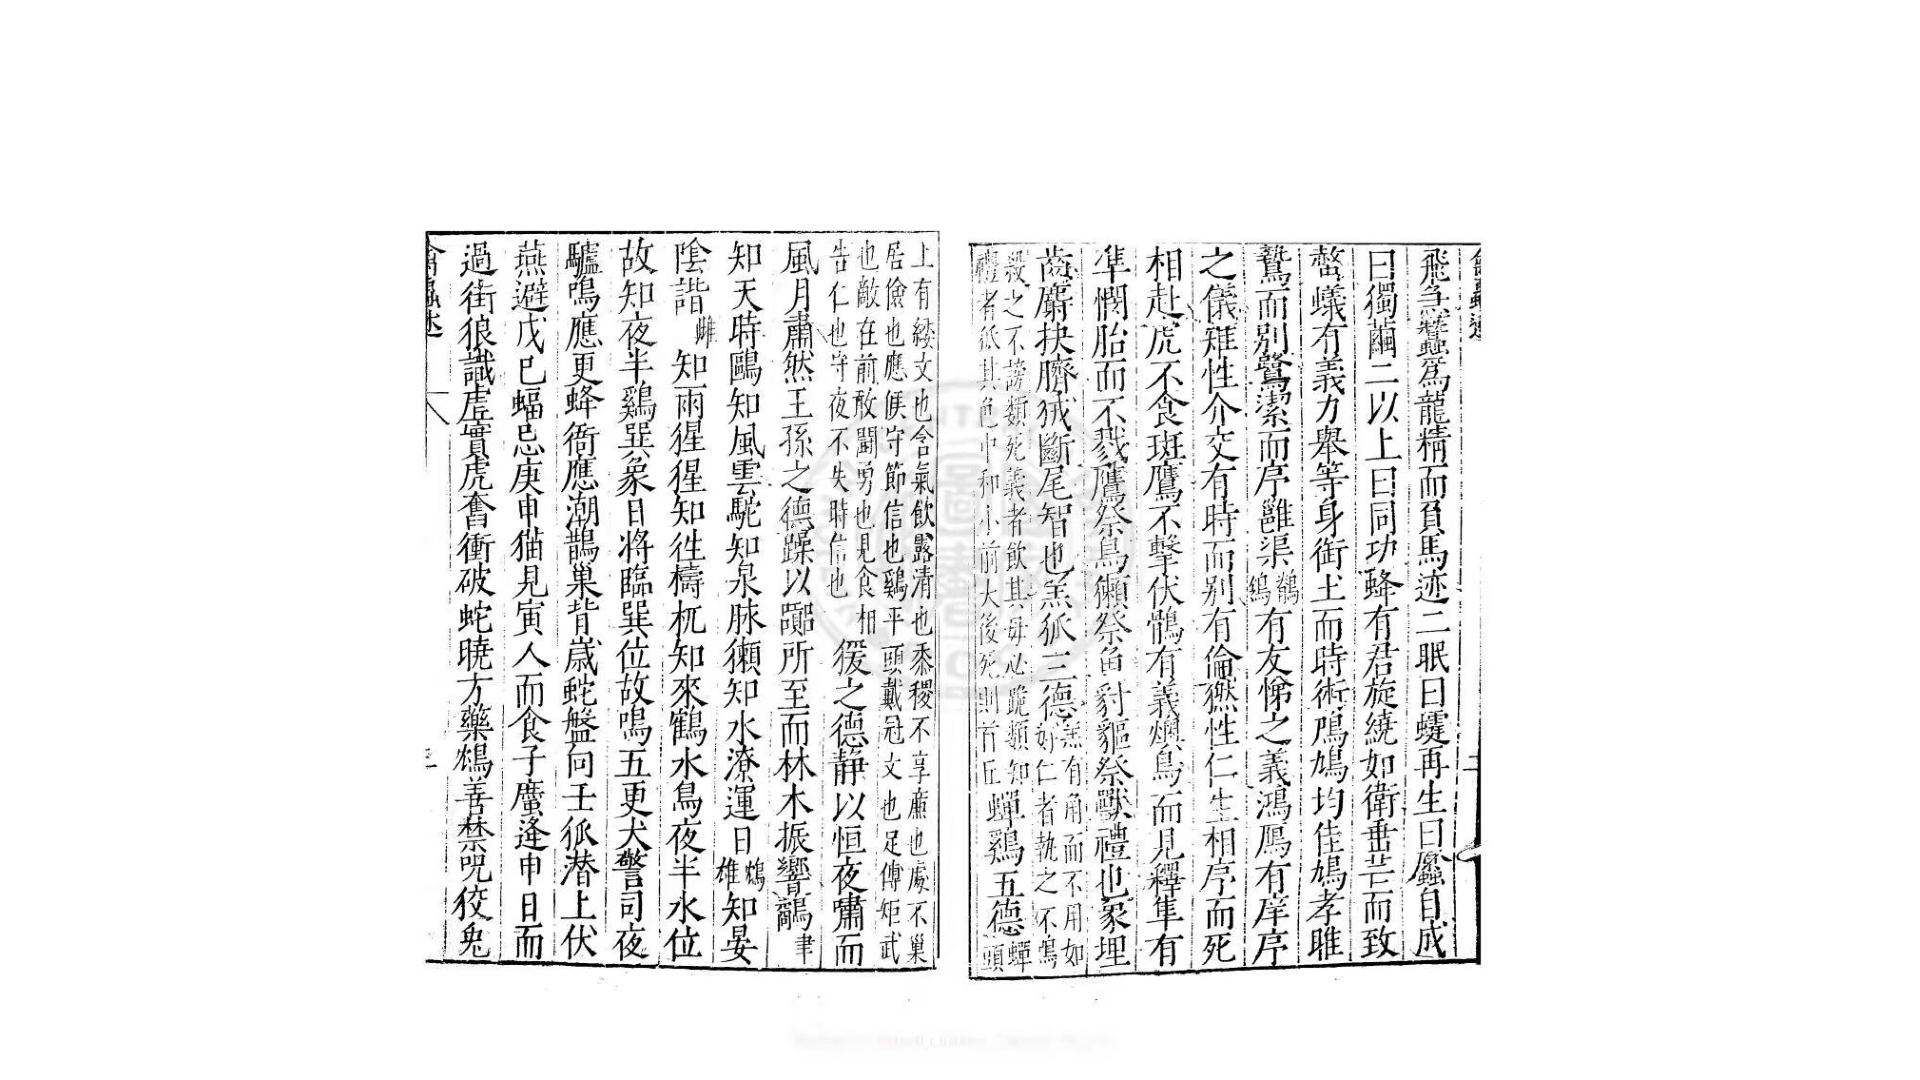 禽蟲述 二
飛急蠶爲龍精而負馬迹二眠曰蝡再生曰自成
曰獨繭二以上曰同功蜂有君旋繞如衛垂芒而致
螫蟻有義力舉等身銜土而時術鳲鳩均佳鳩孝雎
鷙而別鷺潔而序雝渠鶺鴒有友悌之義鴻鴈有庠序
之儀雉性介交有時而别有倫㺊性仁生相序而死
相赴虎不食斑鷹不擊伏鶻有義燠鳥而見釋隼有
準憫胎而不戮鷹祭鳥獺祭魚豺貙祭獸禮也象埋
齒麝抉臍狨斷尾智也羔狐三德羔有角而不用如
好仁者執之不鳴
殺之不謗類死義者飲其母必跪類知
禮者狐其色中和小前大後死則首丘蟬鷄五德蟬
頭
上有緌文也含氣飲露清也黍稷不享廉也處不巢
居儉也應候守節信也鷄平頭戴冠文也足傅矩武
也敵在前敢鬪勇也見食相
告仁也守夜不失時信也猨之德靜以恒夜嘯而
風月肅然王孫之德躁以嚻所至而林木振響鷸聿
知天時鷗知風雲駝知泉脉獺知水潦運日鴆雄知晏
陰諧雌知雨猩猩知徃檮杌知來鶴水鳥夜半水位
故知夜半鷄巽象日將臨巽位故鳴五更犬警司夜
驢鳴應更蜂衙應潮鵲巢背歲蛇盤向壬狐潜上伏
燕避戊巳蝠忌庚申猫見寅人而食子䗪逄申日而
過街狼識虛實虎奮衝破蛇曉方藥鴆善禁呪狡兎
禽蟲述 三